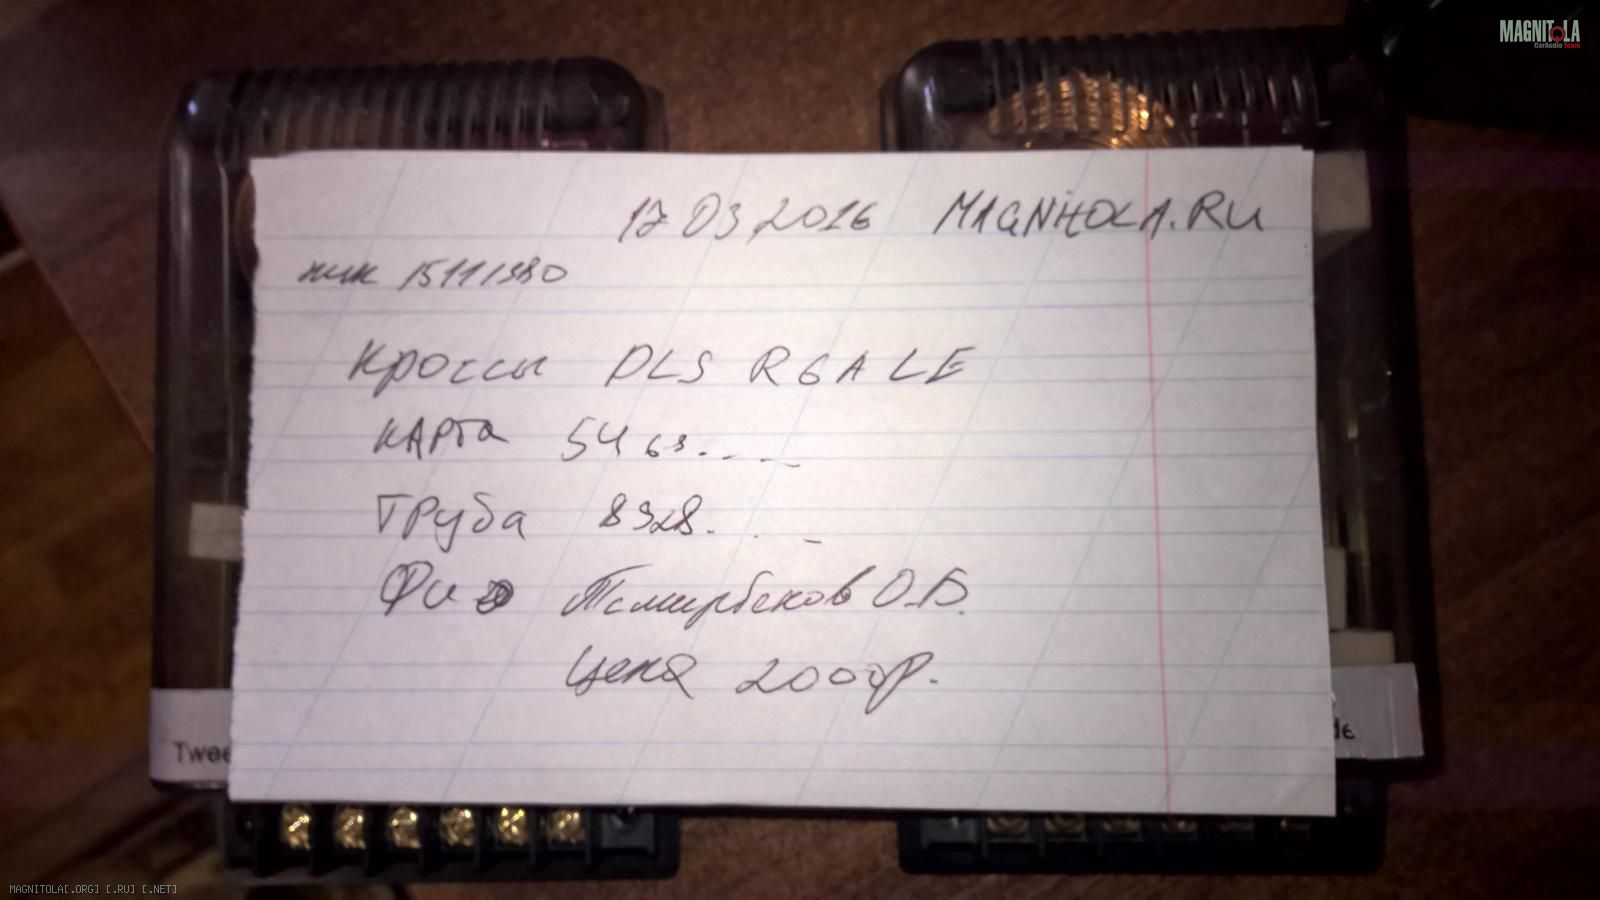 MAGNITOLA
CarAudio Team
17 03 2016 MAGNITOLA.RU
ник 15111980
Кроссы DLS R6A LE
карта 5469....
Труба 8928...
Фио О.Б.
Цена 2000р.
Twee
de
MAGNITOLA[.ORG] [.RU] [.NET]